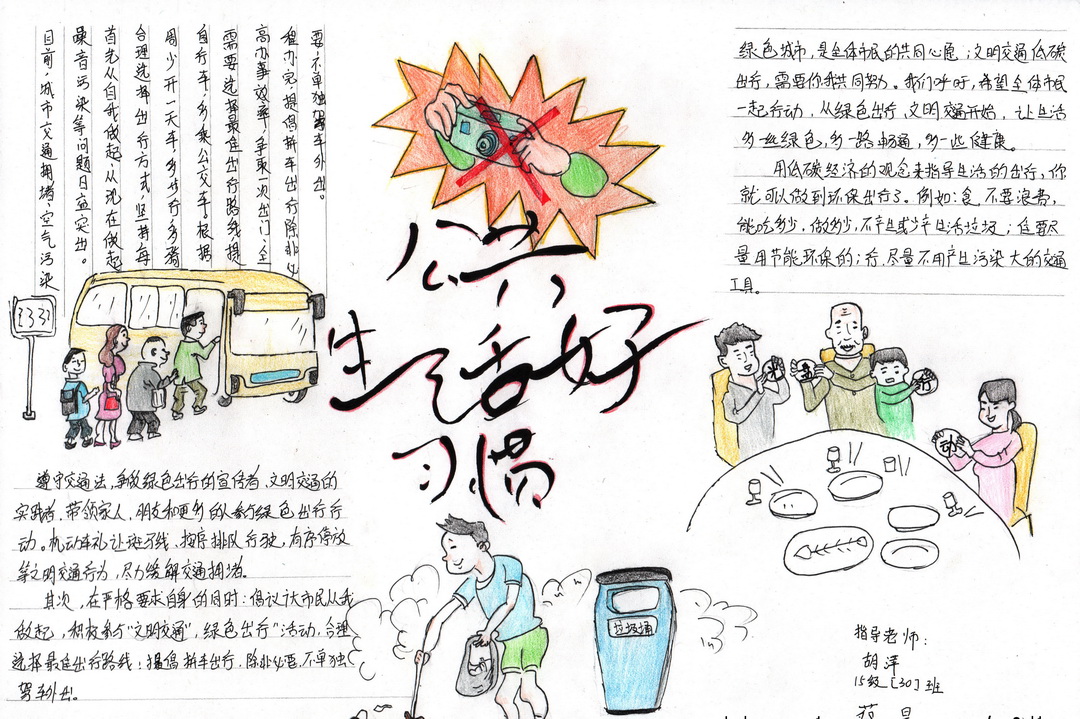 目前,城市交通拥堵,空气污染
噪音污染等问题日益突出。
首先从自我做起从现在做起
合理选择出行方式,坚持每
周少开一天车,多步行,多骑
自行车,多乘公交车,根据
需要选择最佳出行路线提
高办事效率,争取一次出门,全
程办完,提倡拼车出行除非必
要,不单独驾车外出。
公共
生活好
习惯
绿色城市,是全体市民的共同心愿;文明交通低碳
出行,需要你我共同努力。我们呼吁,希望全体市民
一起行动,从绿色出行、文明交通开始,让生活
多一丝绿色,多一路畅通,多一些健康。
用低碳经济的观念来指导生活的出行,你
就可以做到环保出行了。例如:食,不要浪费,
能吃多少,做多少,不产生或少产生活垃圾;住要尽
量用节能环保的;行,尽量不用产生污染大的交通
工具。
光
盘
行
动
遵守交通法,争做绿色出行的宣传者、文明交通的
实践者,带领家人,朋友和更多的人参与绿色出行行
动。机动车礼让斑马线、按序排队行驶,有序停放
等文明交通行为,尽力缓解交通拥堵。
其次,在严格要求自身的同时:倡议广大市民从我
做起,积极参与"文明交通",绿色出行"活动,合理
选择最佳出行路线;提倡拼车出行,除非必要,不单独
驾车外出。
垃圾桶
指导老师:
胡洋
15级[30]班